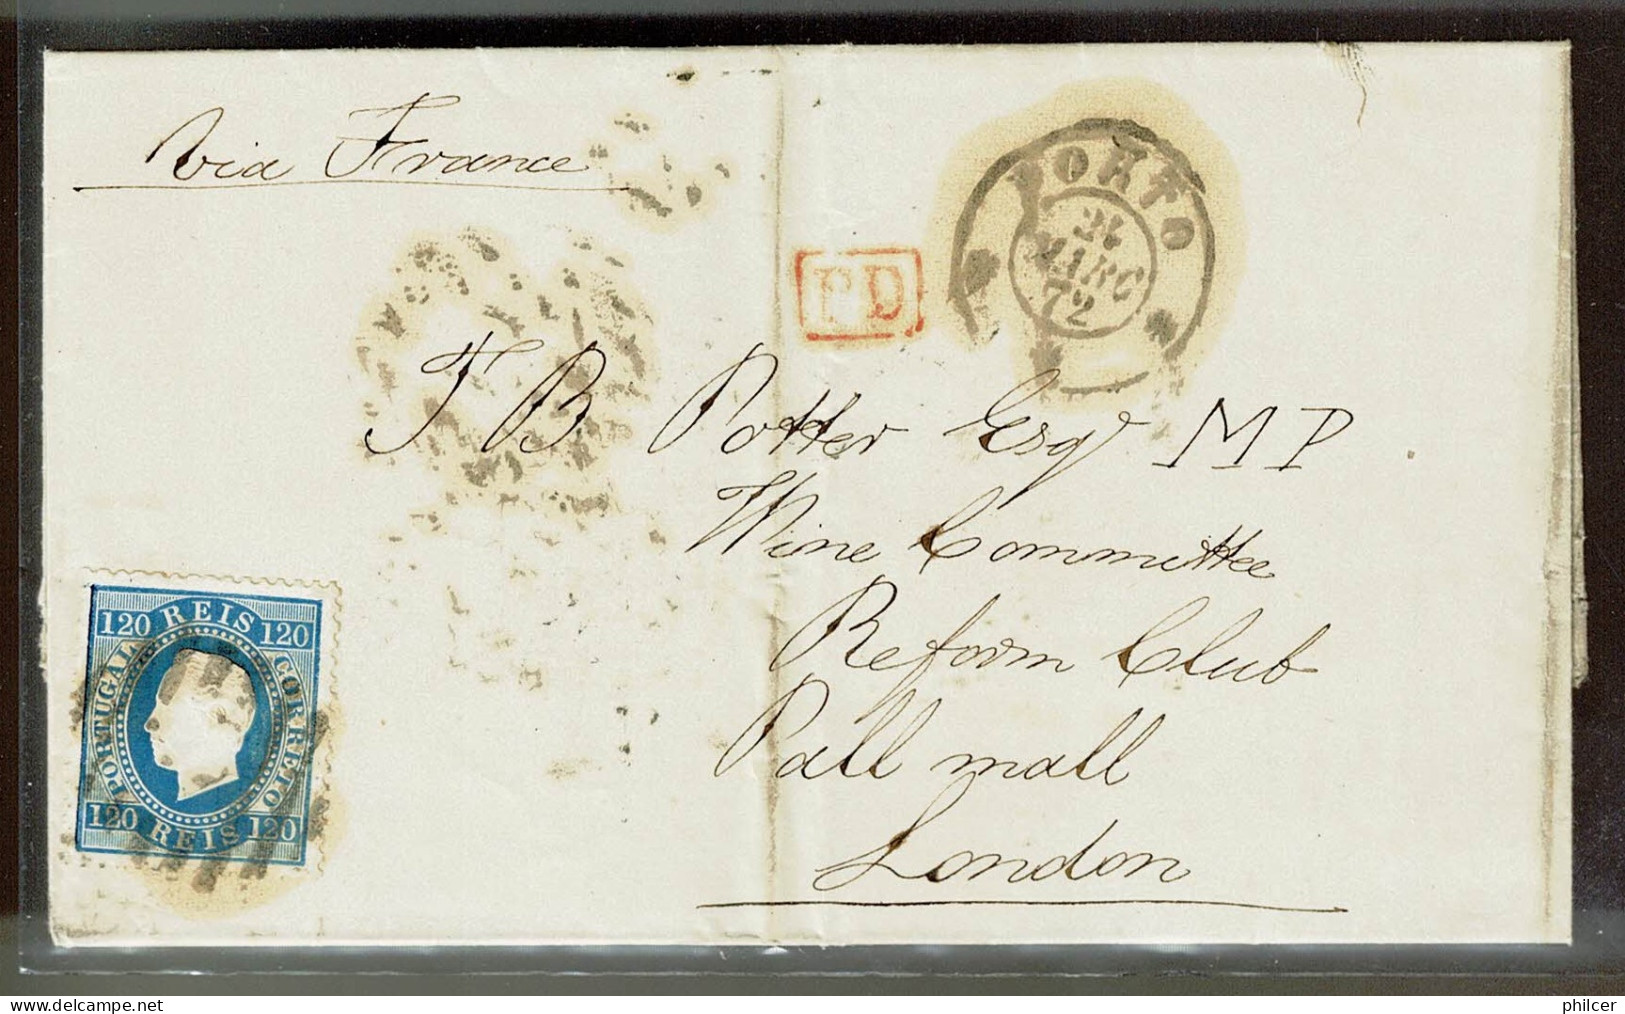 via France
PORTO
MARC
72
PD
T B Potter Esqr MP
Wine Committee
Reform Club
Pall mall
London
120 REIS 120
PORTUGAL CORREIO
120 REIS 120
delcampe.net
philcer